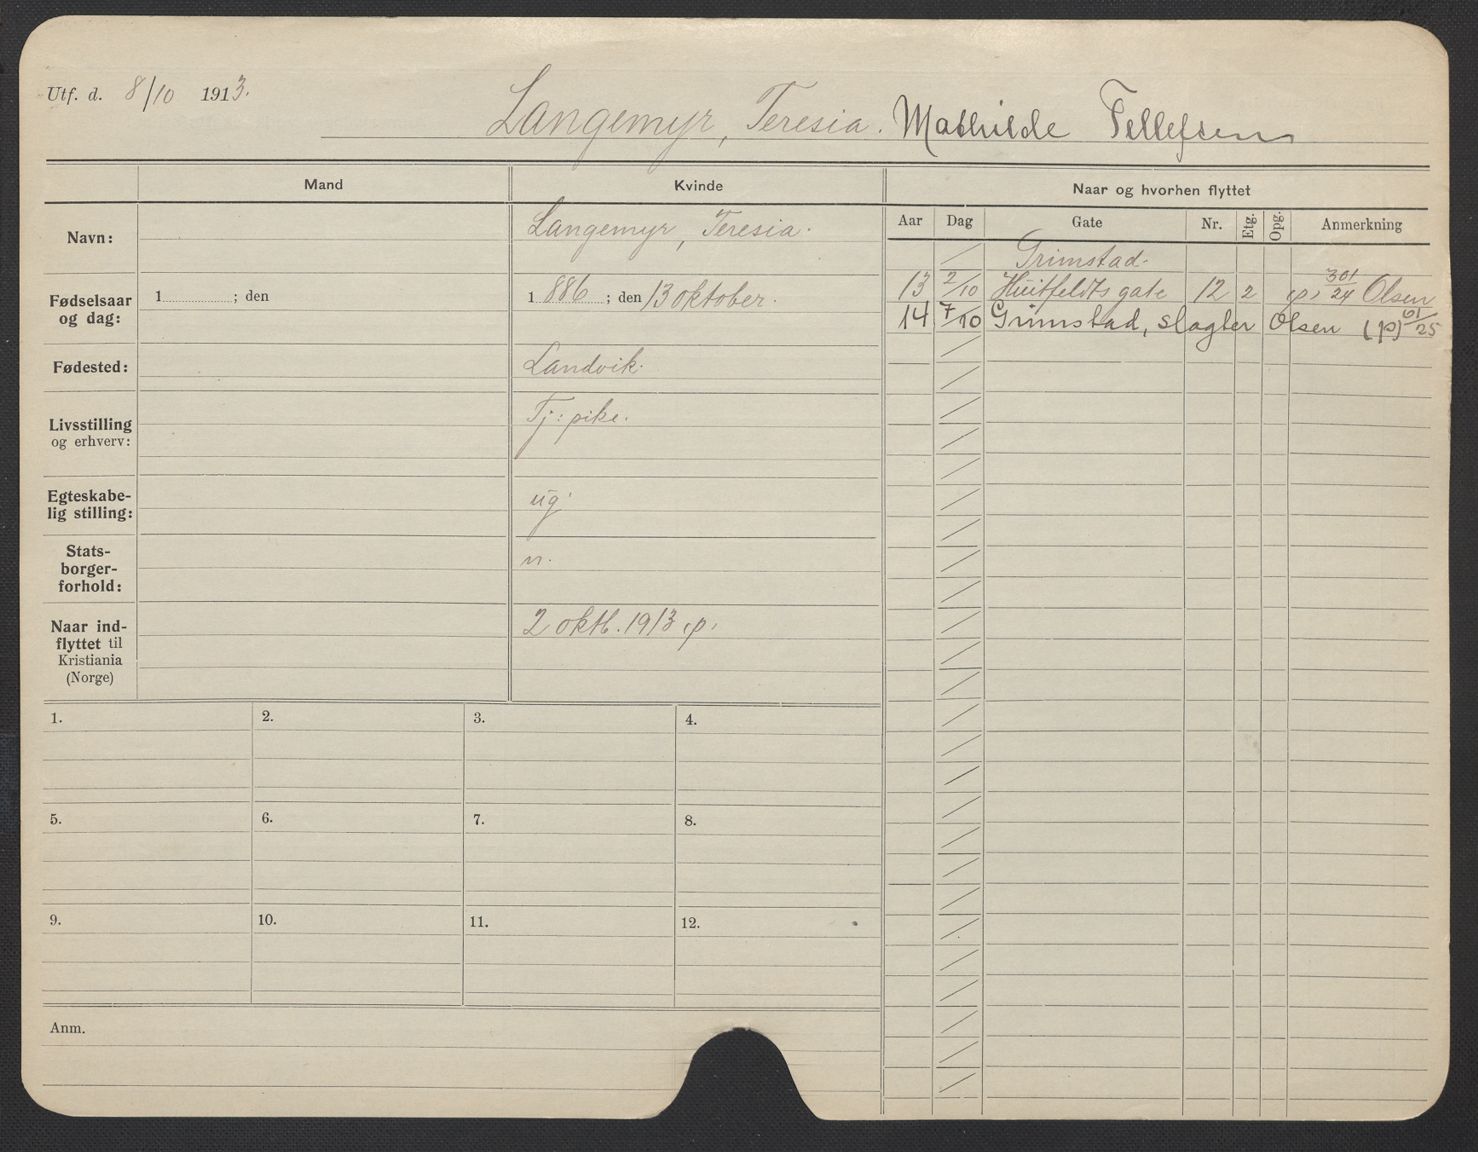 Utf. d. 8/10 1913.
Langemyr, Teresia. Mathilde Tellefsen
Mand
Kvinde
Naar og hvorhen flyttet
Aar Dag Gate Nr. Etg. Opg. Anmerkning
Navn:
Langemyr, Teresia.
Fødselsaar og dag:
1 ; den
1886 ; den 13 oktober.
Fødested:
Landvik.
Livsstilling og erhverv:
Tj: pike.
Egteskabe-
lig stilling:
ug.
Stats-
borger-
forhold:
n.
Naar ind-
flyttet til
Kristiania
(Norge)
2 oktb. 1913 p.
Grimstad.
13 2/10 Huitfeldts gate 12 2 p. 301/24 Olsen
14 7/10 Grimstad, slagter Olsen (p) 61/25
1. 2. 3. 4.
5. 6. 7. 8.
9. 10. 11. 12.
Anm.